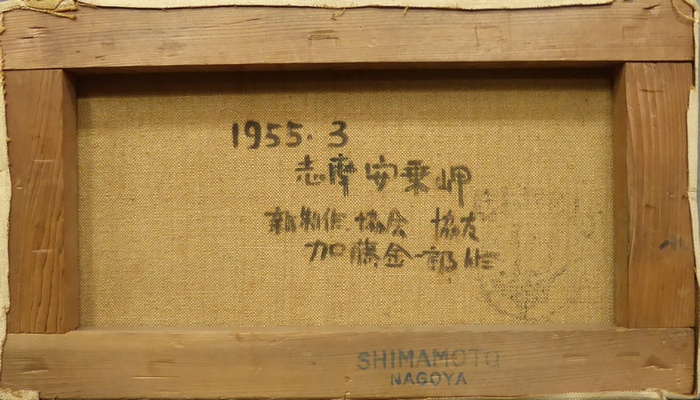 1955.3
志摩安乗岬
新制作協会 協友
加藤金一郎作
SHIMAMOTO
NAGOYA